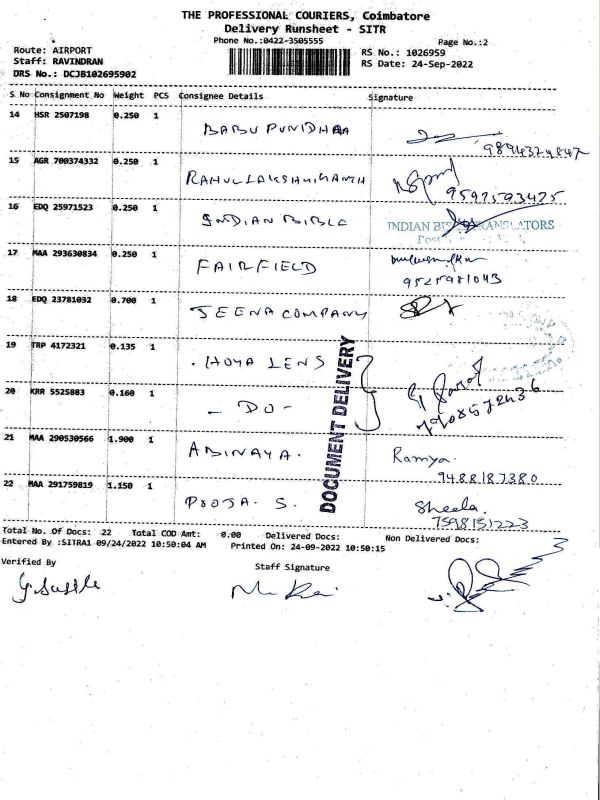 THE PROFESSIONAL COURIERS, Coimbatore
Delivery Runsheet - SITR
Phone No.:0422-3505555
Page No.:2
Route: AIRPORT
RS No.: 1026959
Staff: RAVINDRAN
RS Date: 24-Sep-2022
DRS No.: DCJB102695902
S No Consignment No Weight PCS Consignee Details Signature
14 HSR 2507198 0.250 1
BABU PUNIDHAA
9894324847
15 AGR 700374332 0.250 1
RAHUL LAKSHMIKANTH
9597593425
16 EDQ 25971523 0.250 1
INDIAN BIBLE INDIAN TRANSLATORS
17 MAA 293630834 0.250 1
FAIRFIELD
9525981043
18 EDQ 23781032 0.700 1
JEENA COMPANY
19 TRP 4172321 0.135 1
HOYA LENS
20 KRR 5525883 0.160 1
- DO -
DOCUMENT DELIVERY
21 MAA 290530566 1.900 1
ABINAYA. Ramya.
9488187380
22 MAA 291759819 1.150 1
POOJA. S. Sheela.
7598151223
Total No. Of Docs: 22 Total COD Amt: 0.00 Delivered Docs: Non Delivered Docs:
Entered By :SITRA1 09/24/2022 10:50:04 AM Printed On: 24-09-2022 10:50:15
Verified By Staff Signature